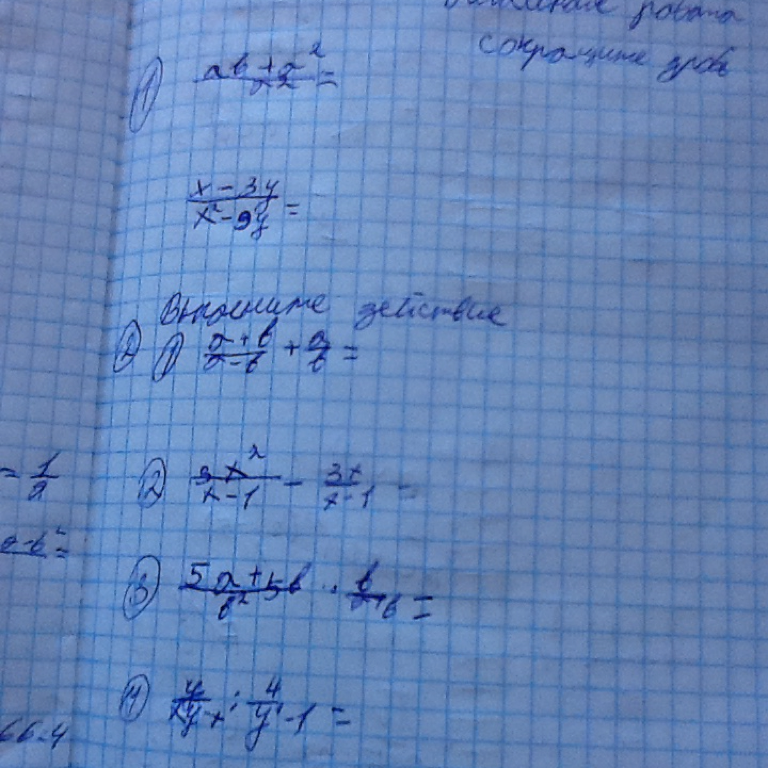 работа
сократите дробь
① ab + a² / a² =
x - 3y / x² - 9y =
Выполните действие
② ① a + b / a - b + a / b =
② 3x² / x - 1 - 3x / x - 1 -
③ 5a + 5b / b² · b / a + b =
④ y / xy - x : 4 / y - 1 =
= 1 / 2
a - b² =
66.4